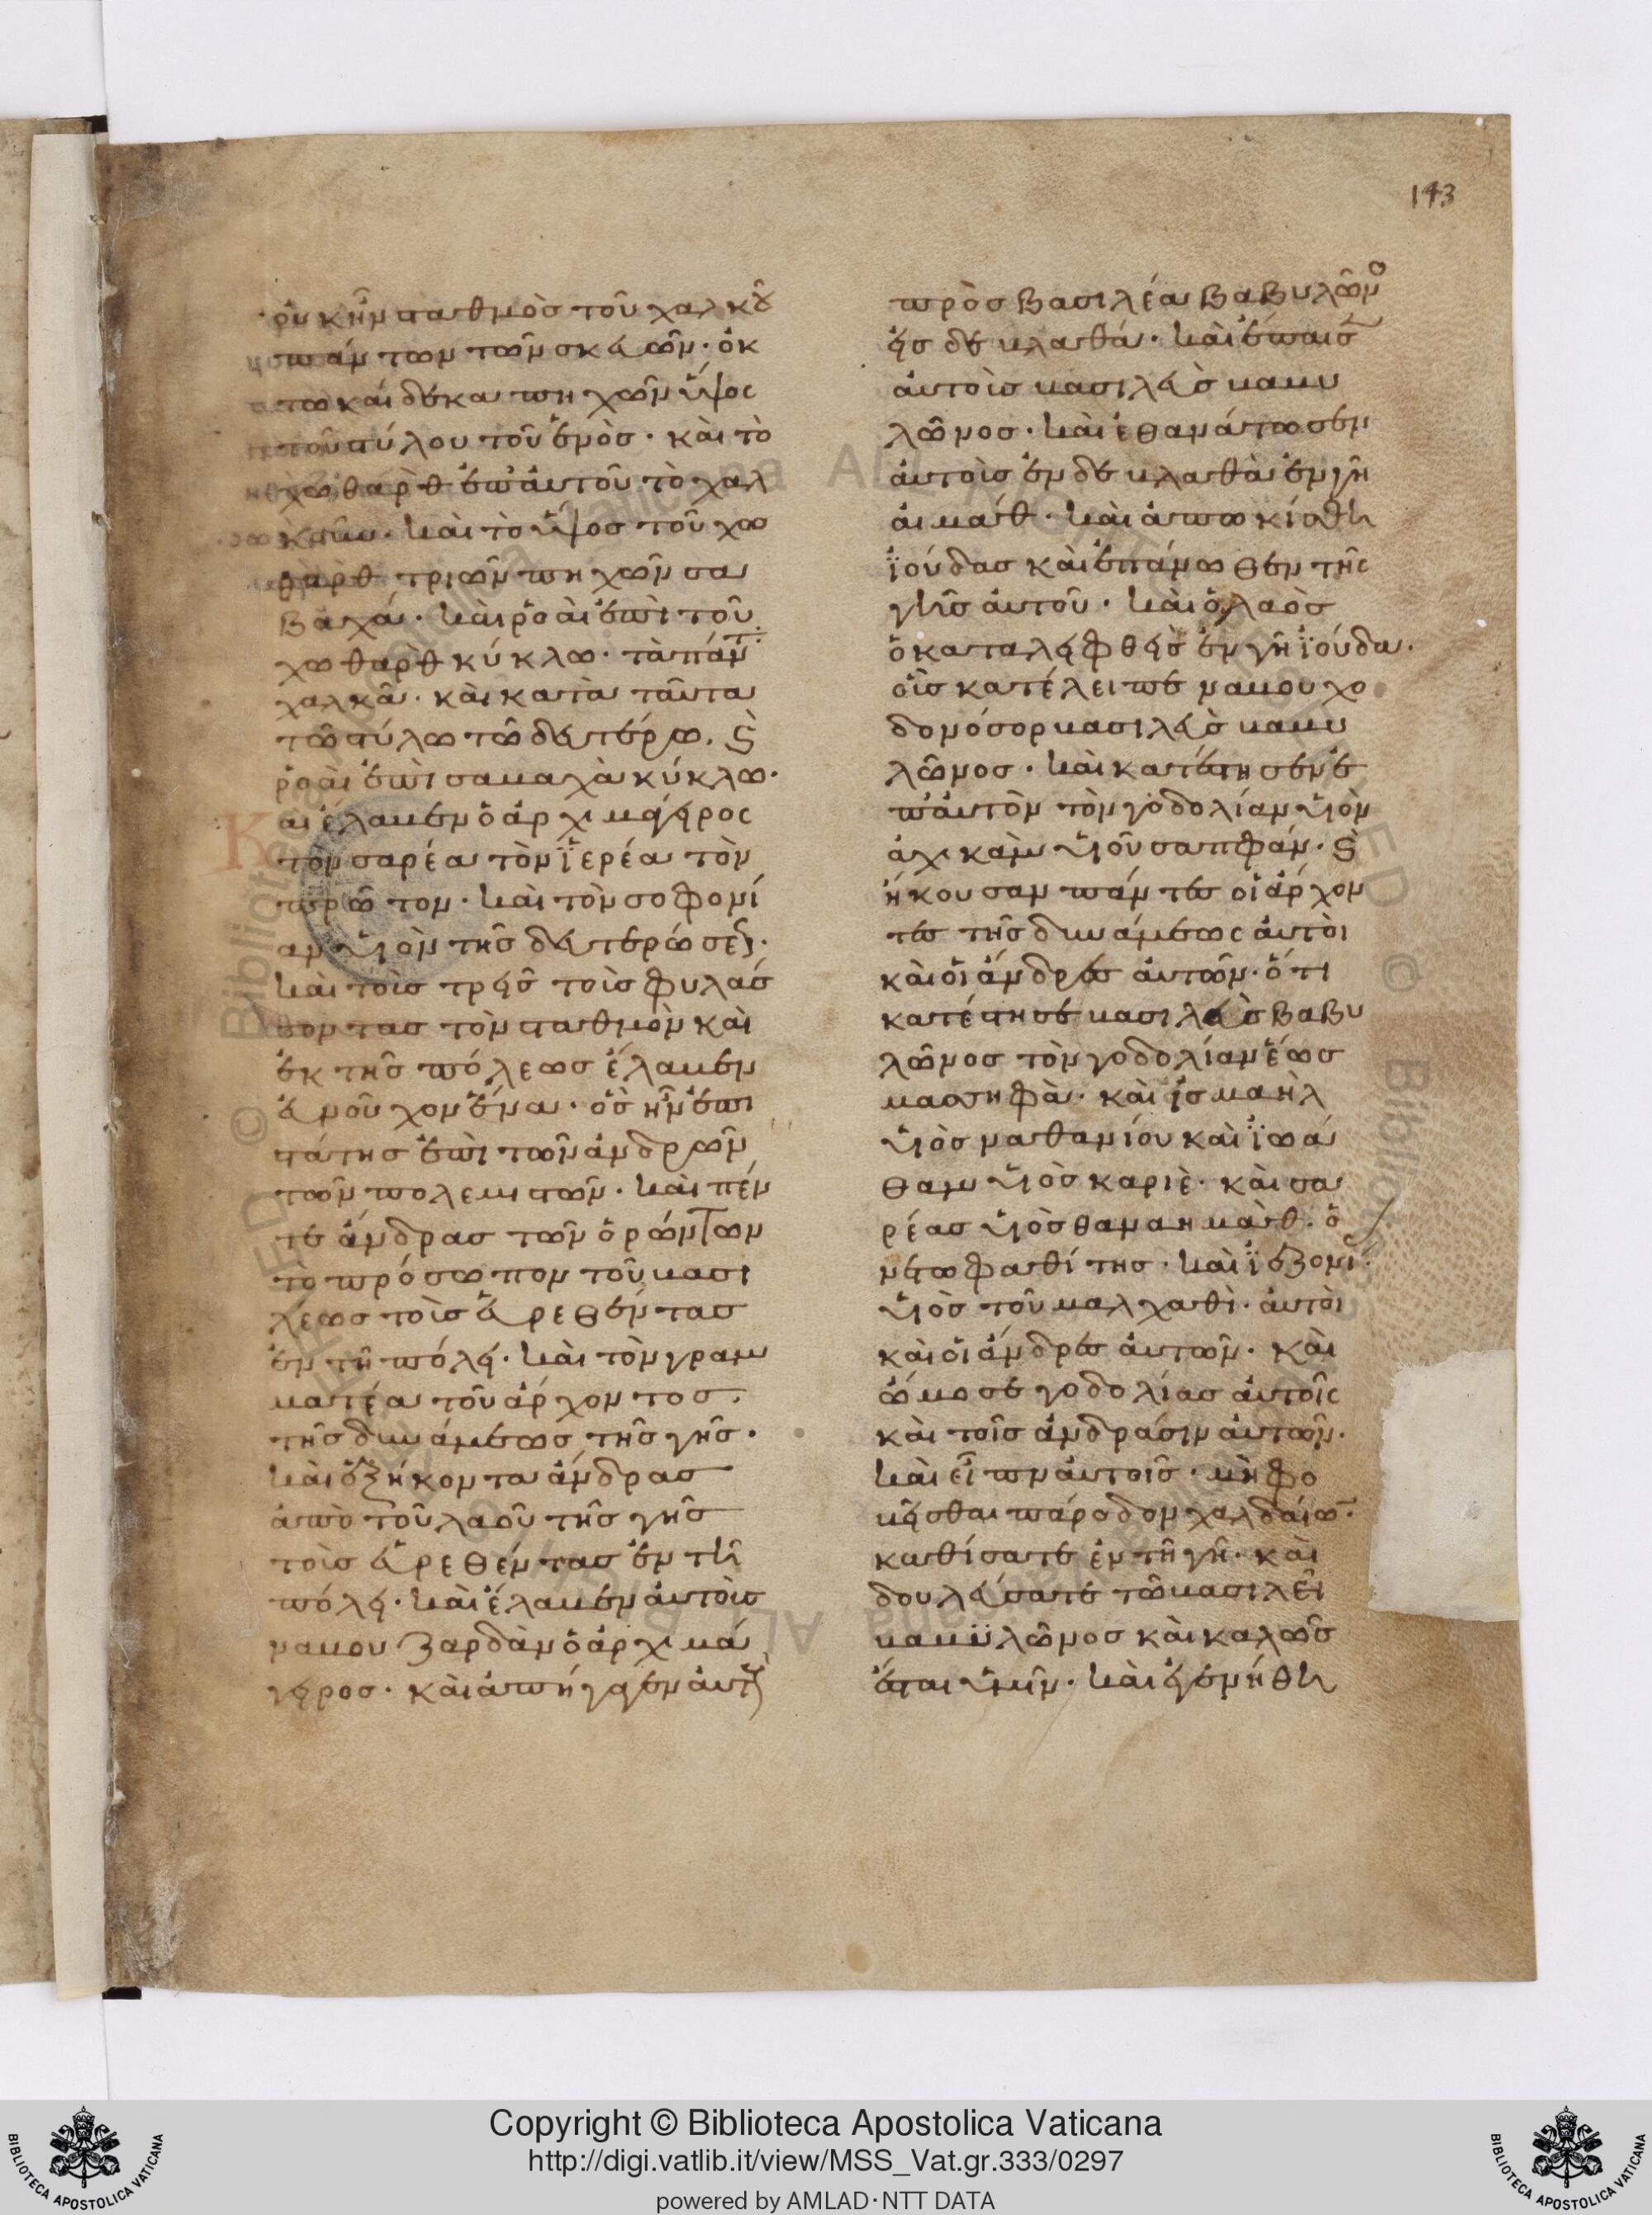 143
οὐκ ἦν σταθμὸς τοῦ χαλκοῦ
πάντων τῶν σκευῶν· ὀκ
τωκαίδεκα πηχῶν ὕψος
τοῦ στύλου τοῦ ἑνὸς· καὶ τὸ
χωθαρὲθ ἐπ' αὐτοῦ τὸ χαλ
κοῦν· καὶ τὸ ὕψος τοῦ χω
θαρὲθ τριῶν πηχῶν σα
βαχά· καὶ ῥοαὶ ἐπὶ τοῦ
χωθαρὲθ κύκλω· τὰ πάντ
χαλκᾶ· καὶ κατὰ ταῦτα
τῶ στύλω τῶ δευτέρω, καὶ
ῥοαὶ ἐπὶ σαβαχὰ κύκλω·
Καὶ ἔλαβεν ὁ ἀρχιμάγειρος
τὸν σαρέα τὸν ϊερέα τὸν
πρῶτον· καὶ τὸν σοφονί
αν υἱὸν τῆς δευτερώσεως·
καὶ τοὺς τρεῖς τοὺς φυλάσ
σοντας τὸν σταθμὸν καὶ
ἐκ τῆς πόλεως ἔλαβεν
εὐνοῦχον ἕνα· ὃς ἦν ἐπι
στάτης ἐπὶ τῶν ἀνδρῶν
τῶν πολεμιστῶν· καὶ πέν
τε ἄνδρας τῶν ὁρώντων
τὸ πρόσωπον τοῦ βασι
λέως τοὺς εὑρεθέντας
ἐν τῆ πόλει· καὶ τὸν γραμ
ματέα τοῦ ἄρχοντος.
τῆς δυνάμεως τῆς γῆς·
καὶ ἑξήκοντα ἄνδρας
ἀπὸ τοῦ λαοῦ τῆς γῆς
τοὺς εὑρεθέντας ἐν τῆ
πόλει· καὶ ἔλαβεν αὐτοὺς
ναβουζαρδὰν ὁ ἀρχιμά
γειρος· καὶ ἀπήγαγεν αὐτοὺς
πρὸς βασιλέα βαβυλῶνο
εἰς δεβλαθά· καὶ ἔπαισεν
αὐτοὺς βασιλεὺς βαβυ
λῶνος· καὶ ἐθανάτωσεν
αὐτοὺς ἐν δεβλαθὰ ἐν γῆ
αἰμάθ· καὶ ἀπωκίσθη
ϊούδας καὶ ἐπάνωθεν τῆς
γῆς αὐτοῦ· καὶ ὁ λαὸς
ὁ καταλειφθεὶς ἐν γῆ ϊούδα·
οὓς κατέλειπε ναβουχο
δονόσορ βασιλεὺς βαβυ
λῶνος· καὶ κατέστησεν ἐ
π' αὐτὸν τὸν γοδολίαν υἱὸν
ἀχικὰμ υἱοῦ σαπφάν· καὶ
ἤκουσαν πάντες οἱ ἄρχον
τες τῆς δυνάμεως αὐτοὶ
καὶ οἱ ἄνδρες αὐτῶν· ὅτι
κατέστησε βασιλεὺς βαβυ
λῶνος τὸν γοδολίαν ἕως
μασσηφὰ· καὶ ἰσμαὴλ
υἱὸς ναθανίου καὶ ϊωά
θαν υἱὸς καριὲ· καὶ σα
ρέας υἱὸς θαναημὰθ· ὁ
νετωφαθίτης· καὶ ϊεζονί
υἱὸς τοῦ μαλχαθὶ· αὐτοὶ
καὶ οἱ ἄνδρες αὐτῶν· καὶ
ὤμοσε γοδολίας αὐτοῖς
καὶ τοῖς ἀνδράσιν αὐτῶν·
καὶ εἶπεν αὐτοῖς· μὴ φο
βεῖσθαι πάροδον χαλδαίων·
καθίσατε ἐν τῆ γῆ· καὶ
δουλεύσατε τῶ βασιλεῖ
βαβυλῶνος καὶ καλῶς
ἔσται ὑμῖν· καὶ ἐγενήθη
Copyright © Biblioteca Apostolica Vaticana
http://digi.vatlib.it/view/MSS_Vat.gr.333/0297
powered by AMLAD·NTT DATA
BIBLIOTECA APOSTOLICA VATICANA
BIBLIOTECA APOSTOLICA VATICANA